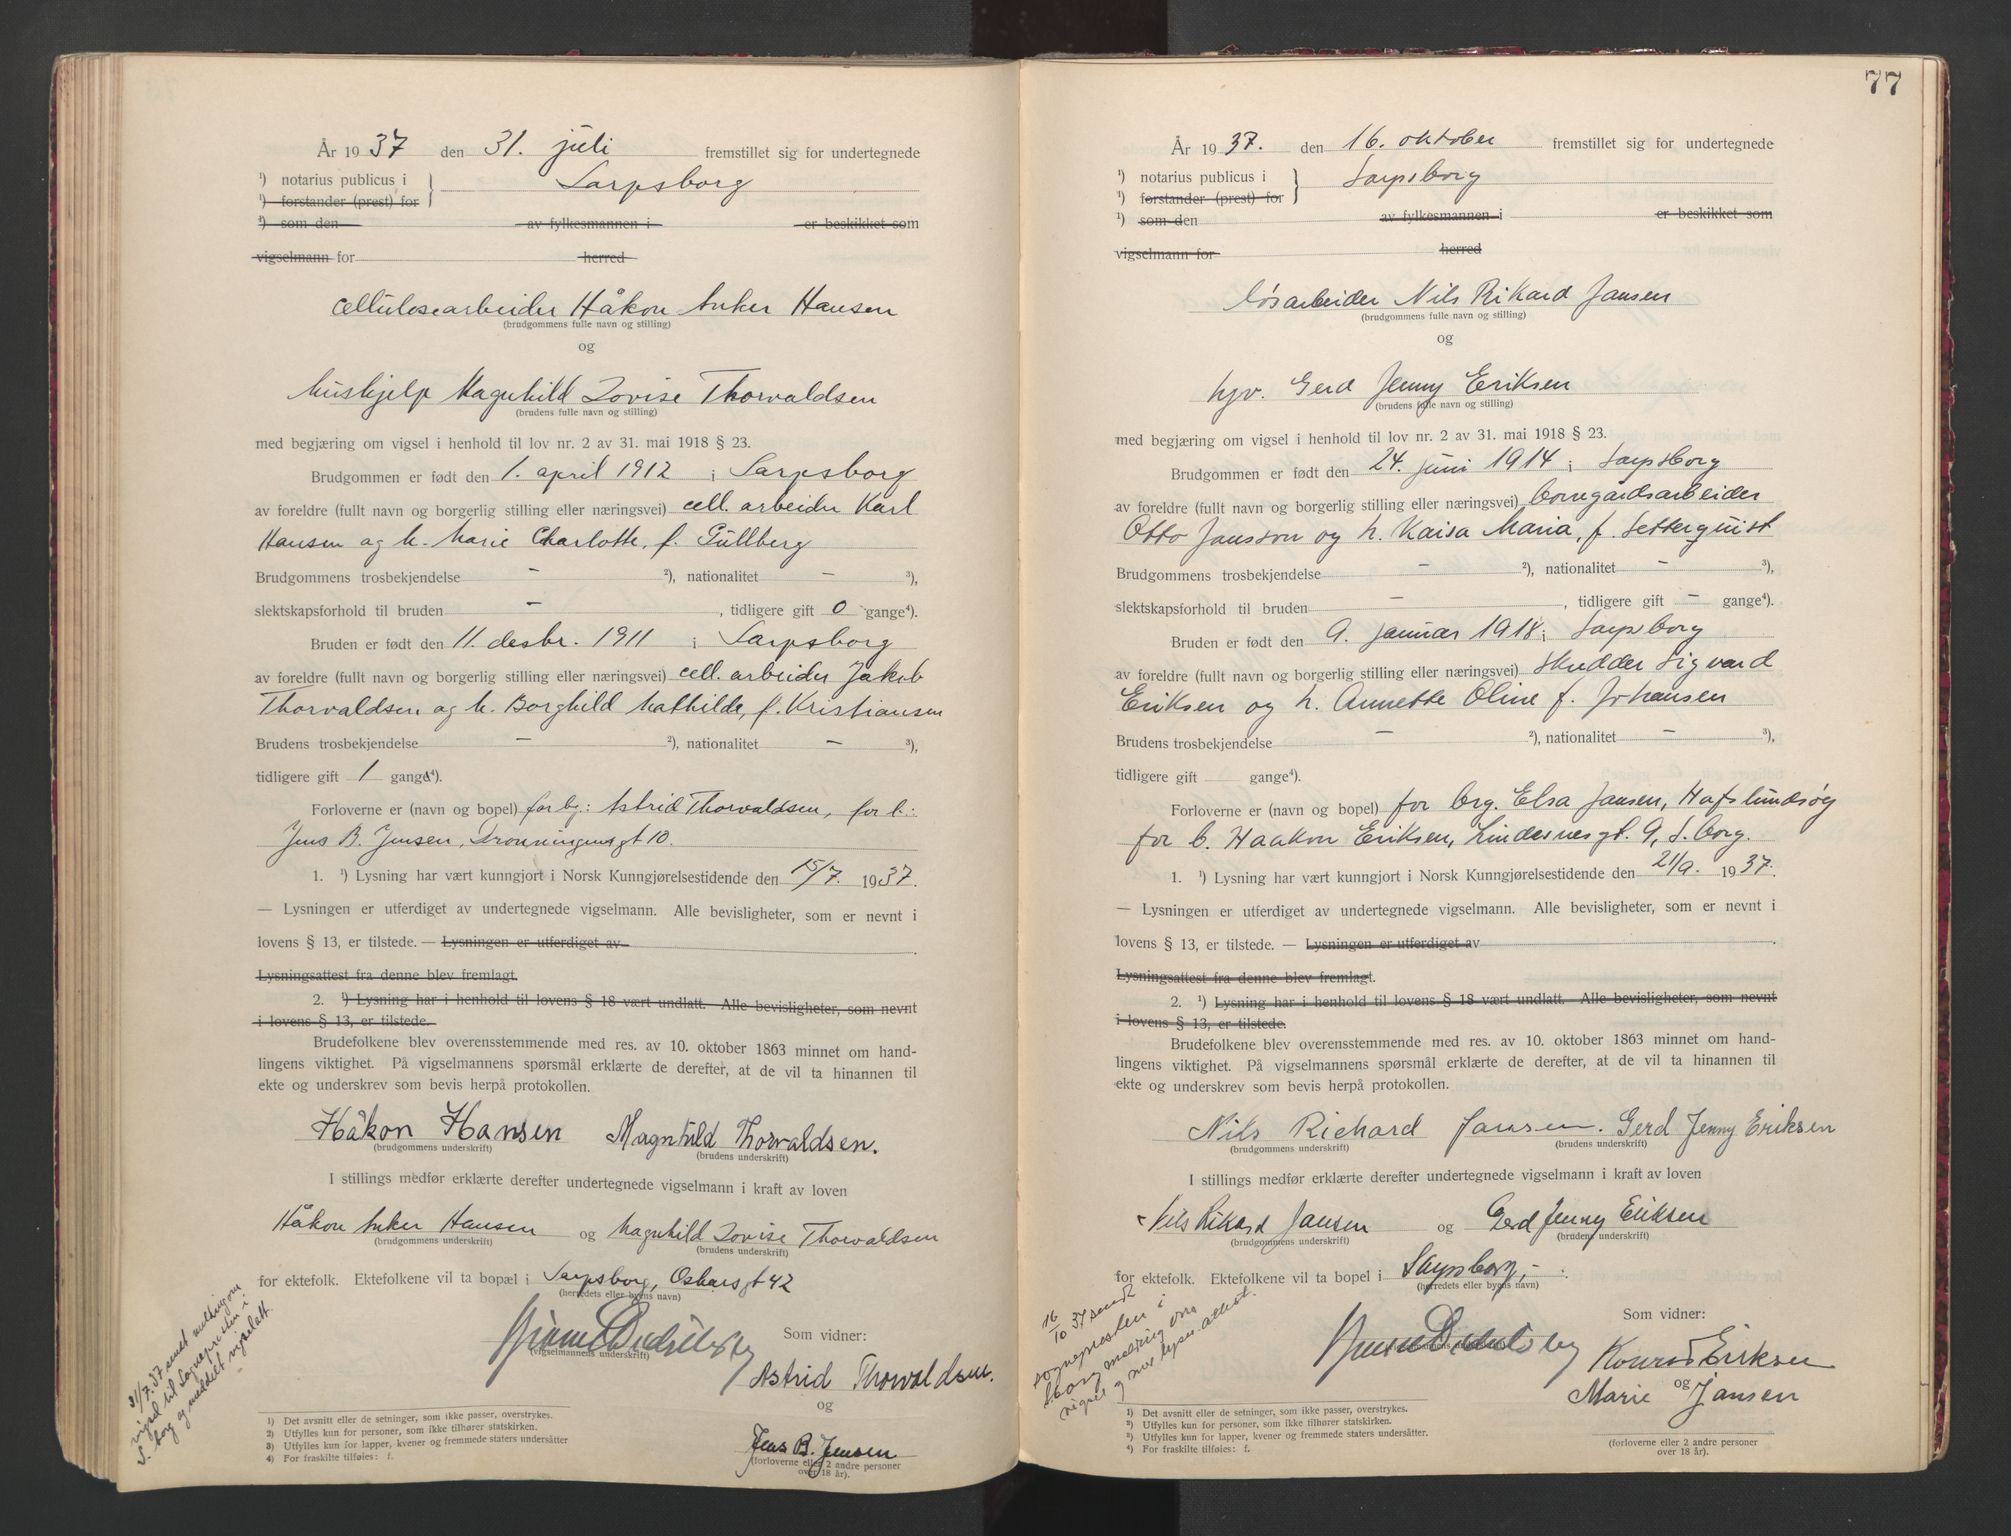 År 1937 den 31. juli fremstillet sig for undertegnede
¹) notarius publicus i Sarpsborg
¹) forstander (prest) for
¹) som den av fylkesmannen i er beskikket som
vigselmann for herred
cellulosearbeider Håkon Anker Hansen
(brudgommens fulle navn og stilling)
og
hushjelp Magnhild Lovise Thorvaldsen
(brudens fulle navn og stilling)
med begjæring om vigsel i henhold til lov nr. 2 av 31. mai 1918 § 23.
Brudgommen er født den 1. april 1912 i Sarpsborg
av foreldre (fullt navn og borgerlig stilling eller næringsvei) cell. arbeider Karl
Hansen og h. Marie Charlotte, f. Gullberg
Brudgommens trosbekjendelse – ²), nationalitet – ³),
slektskapsforhold til bruden – , tidligere gift 0 gange⁴).
Bruden er født den 11. desbr. 1911 i Sarpsborg
av foreldre (fullt navn og borgerlig stilling eller næringsvei) cell. arbeider Jakob
Thorvaldsen og h. Borghild Mathilde, f. Kristiansen
Brudens trosbekjendelse – ²), nationalitet – ³),
tidligere gift 1 gange⁴).
Forloverne er (navn og bopel) for bg.: Astrid Thorvaldsen, for b.:
Jens B. Jensen, Dronningensgt 10.
1. ¹) Lysning har vært kunngjort i Norsk Kunngjørelsestidende den 15/7. 1937.
— Lysningen er utferdiget av undertegnede vigselmann. Alle bevisligheter, som er nevnt i
lovens § 13, er tilstede. — Lysningen er utferdiget av
Lysningsattest fra denne blev fremlagt.
2. ¹) Lysning har i henhold til lovens § 18 vært undlatt. Alle bevisligheter, som nevnt
i lovens § 13, er tilstede.
Brudefolkene blev overensstemmende med res. av 10. oktober 1863 minnet om hand-
lingens viktighet. På vigselmannens spørsmål erklærte de derefter, at de vil ta hinannen til
ekte og underskrev som bevis herpå protokollen.
Håkon Hansen Magnhild Thorvaldsen.
(brudgommens underskrift) (brudens underskrift)
I stillings medfør erklærte derefter undertegnede vigselmann i kraft av loven
Håkon Anker Hansen og Magnhild Lovise Thorvaldsen
(brudgommens underskrift) (brudens underskrift)
for ektefolk. Ektefolkene vil ta bopæl i Sarpsborg, Oskarsgt 42
(herredets eller byens navn)
Som vidner:
(vigselmannens underskrift)
Astrid Thorvaldsen.
og
Jens B. Jensen
(forloverne eller 2 andre personer
over 18 år).
31/7.37 sendt melding om
vigsel til Sognepresten i
S. borg og meddelt vigselatt.
1) Det avsnitt eller de setninger, som ikke passer, overstrykes.
2) Utfylles kun for personer, som ikke tilhører statskirken.
3) Utfylles kun for lapper, kvener og fremmede staters undersåtter
4) For fraskilte tilføies: f.
77
År 1937. den 16. oktober fremstillet sig for undertegnede
¹) notarius publicus i Sarpsborg
¹) forstander (prest) for
¹) som den av fylkesmannen i er beskikket som
vigselmann for herred
løsarbeider Nils Rikard Jansen
(brudgommens fulle navn og stilling)
og
hjv. Gerd Jenny Eriksen
(brudens fulle navn og stilling)
med begjæring om vigsel i henhold til lov nr. 2 av 31. mai 1918 § 23.
Brudgommen er født den 24. juni 1914 i Sarpsborg
av foreldre (fullt navn og borgerlig stilling eller næringsvei) borregårdsarbeider
Otto Jansson og h. Kaisa Maria, f. Setterquist
Brudgommens trosbekjendelse – ²), nationalitet – ³),
slektskapsforhold til bruden – , tidligere gift – gange⁴).
Bruden er født den 9. januar 1918 i Sarpsborg
av foreldre (fullt navn og borgerlig stilling eller næringsvei) skredder Sigvard
Eriksen og h. Annette Oline f. Johansen
Brudens trosbekjendelse – ²), nationalitet – ³),
tidligere gift gange⁴).
Forloverne er (navn og bopel) for brg. Elsa Jansen, Hafslundsøy
for b. Haakon Eriksen, Lindesnesgt. 9, S. borg.
1. ¹) Lysning har vært kunngjort i Norsk Kunngjørelsestidende den 21/9. 1937.
— Lysningen er utferdiget av undertegnede vigselmann. Alle bevisligheter, som er nevnt i
lovens § 13, er tilstede. — Lysningen er utferdiget av
Lysningsattest fra denne blev fremlagt.
2. ¹) Lysning har i henhold til lovens § 18 vært undlatt. Alle bevisligheter, som nevnt
i lovens § 13, er tilstede.
Brudefolkene blev overensstemmende med res. av 10. oktober 1863 minnet om hand-
lingens viktighet. På vigselmannens spørsmål erklærte de derefter, at de vil ta hinannen til
ekte og underskrev som bevis herpå protokollen.
Nils Richard Jansen. Gerd Jenny Eriksen
(brudgommens underskrift) (brudens underskrift)
I stillings medfør erklærte derefter undertegnede vigselmann i kraft av loven
Nils Rikard Jansen og Gerd Jenny Eriksen
(brudgommens underskrift) (brudens underskrift)
for ektefolk. Ektefolkene vil ta bopel i Sarpsborg,-
(herredets eller byens navn)
Som vidner:
Konrad Eriksen
og
Marie Jansen
(forloverne eller 2 andre personer
over 18 år).
16/10 37 sendt
sognepresten i
S borg melding om
vigsel og
1) Det avsnitt eller de setninger, som ikke passer, overstrykes.
2) Utfylles kun for personer, som ikke tilhører statskirken.
3) Utfylles kun for lapper, kvener og fremmede staters undersåtter.
4) For fraskilte tilføies: f.